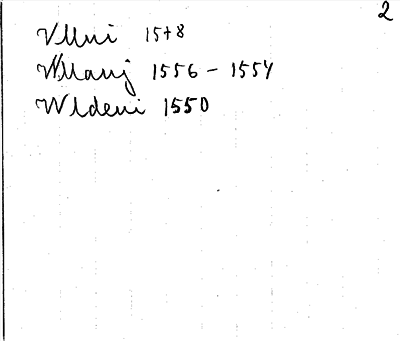 2
VUni 1578
Wlanj 1556 - 1554
Wldeni 1550